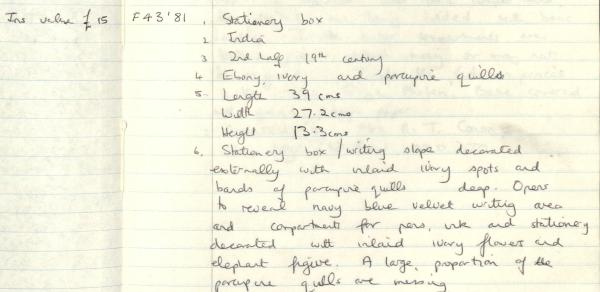 Ins value £15 F43'81 1. Stationery box
2 India
3 2nd half 19th century
4 Ebony, ivory and porcupine quills
5. Length 39 cms
Width 27.2cms
Height 13.3cms
6. Stationery box / writing slope decorated
externally with inlaid ivory spots and
bands of porcupine quills deep. Opens
to reveal navy blue velvet writing area
and compartments for pens, ink and stationery
decorated with inlaid ivory flowers and
elephant figure. A large proportion of the
porcupine quills are missing